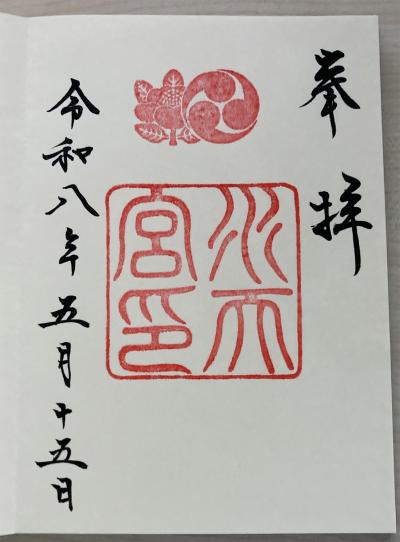 奉拝
水天
宮印
令和八年五月十五日